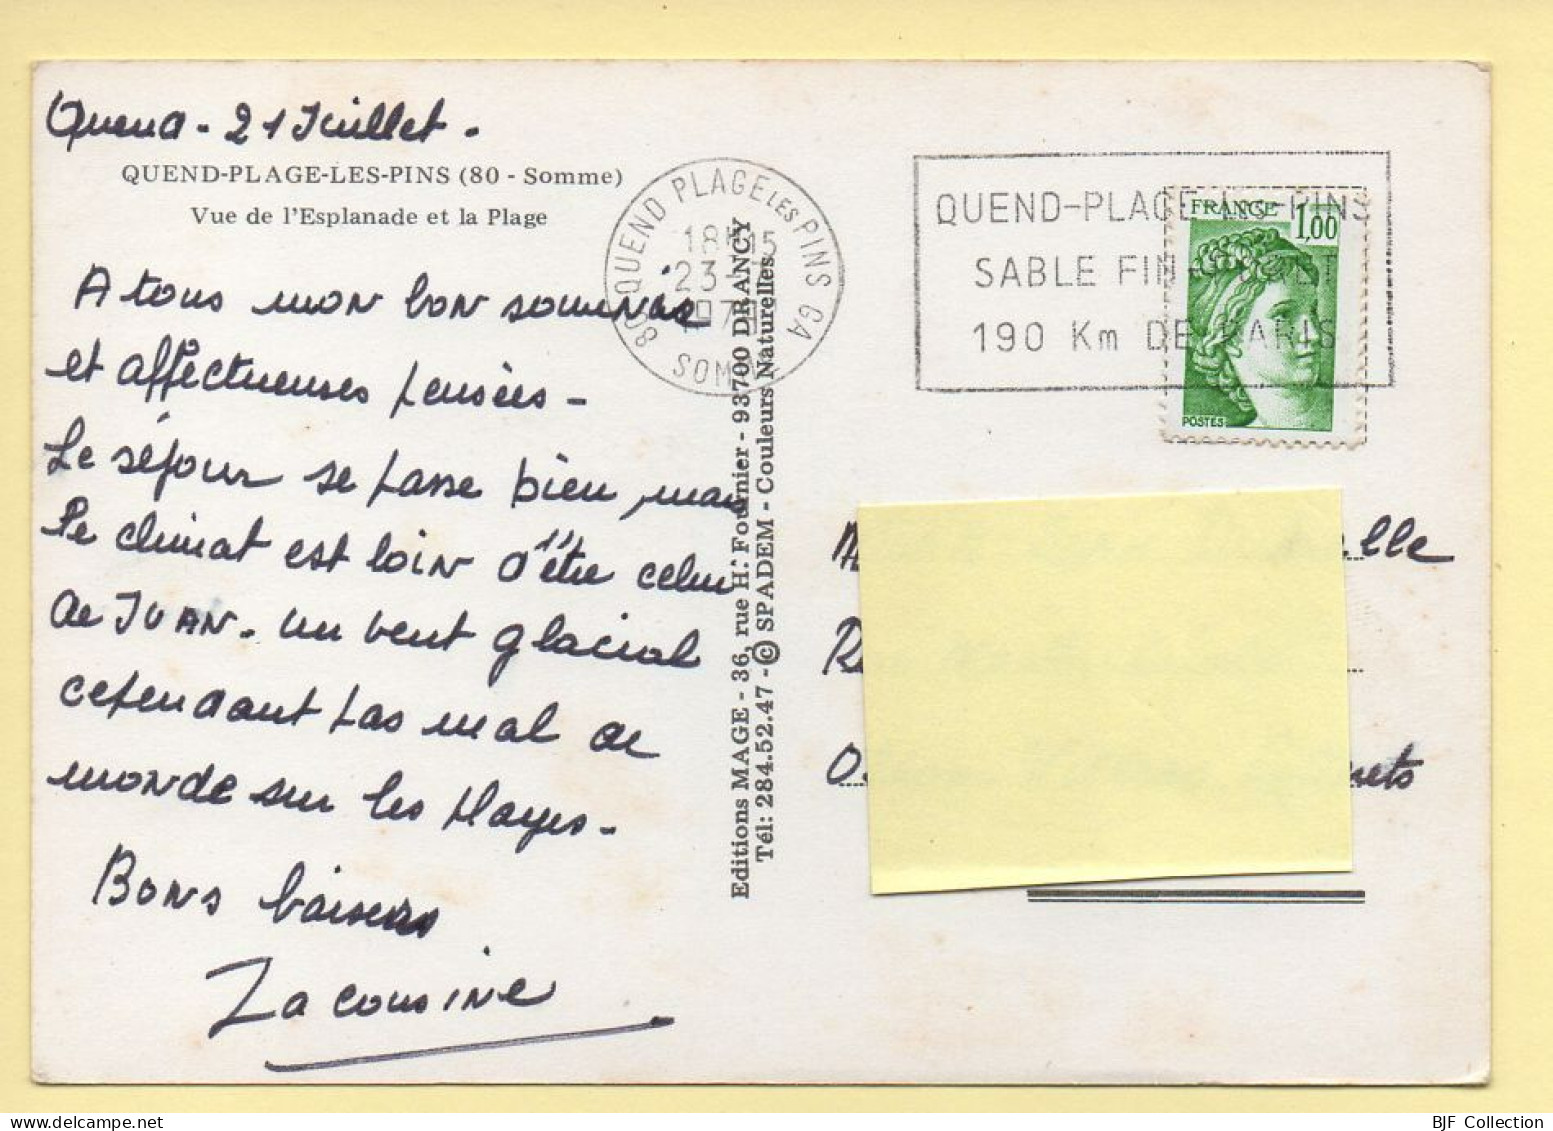 Quend - 21 Juillet -
QUEND-PLAGE-LES-PINS (80 - Somme)
Vue de l'Esplanade et la Plage
A tous mon bon souvenir
et affectueuses pensées -
Le séjour se passe bien, mais
le climat est loin d'être celui
de JUAN - un vent glacial
cependant pas mal de
monde sur les plages -
Bons baisers
La cousine
Editions MAGE - 36, rue H. Fournier - 93700 DRANCY
Tél: 284.52.47 - © SPADEM - Couleurs Naturelles
80 QUEND PLAGE LES PINS GA
18H15
23-7
SOMME
QUEND-PLAGE-LES-PINS
SABLE FIN
190 Km DE PARIS
FRANCE 1,00
POSTES
elle
BJF Collection